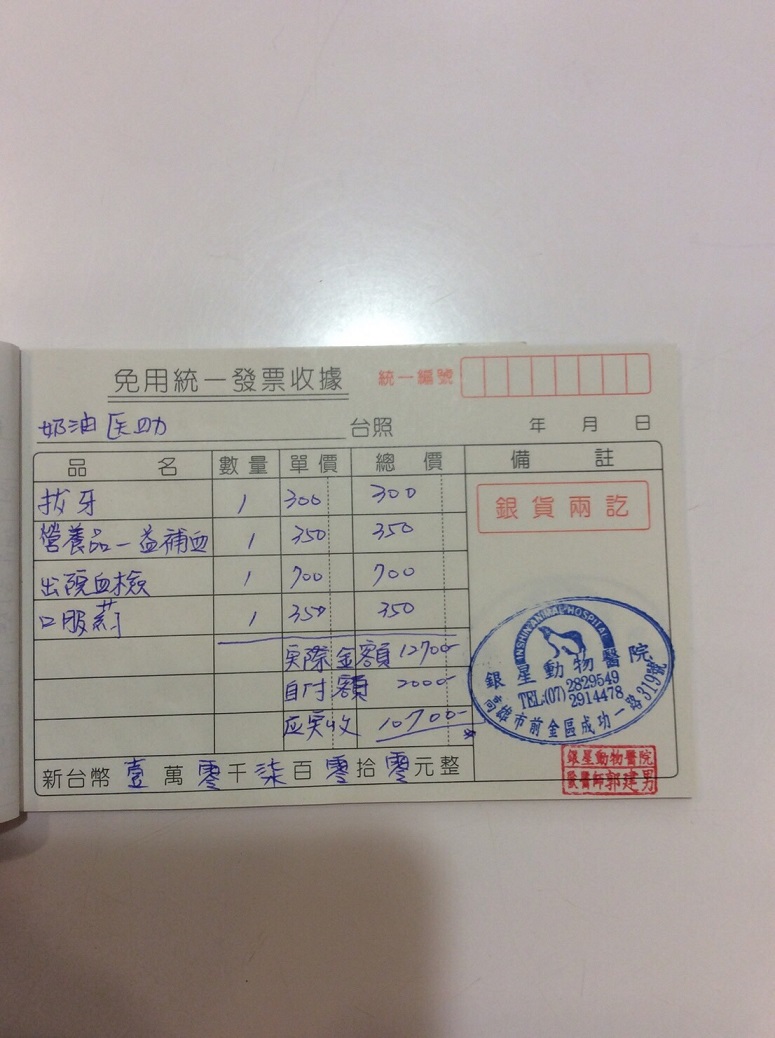 免用統一發票收據
統一編號
奶油医助 台照 年 月 日
品 名 數量 單價 總價 備註
拔牙 1 300 300
銀貨兩訖
營養品-益補血 1 350 350
出院血檢 1 700 700
口服葯 1 350 350
实際金額 12700-
自付額 2000-
应实收 10700-
新台幣 壹 萬 零 千 柒 百 零 拾 零 元整
INSHIN ANIMAL HOSPITAL
銀星動物醫院
TEL:(07)2829549
2914478
高雄市前金區成功一路319號
銀星動物醫院
獸醫師郭建男